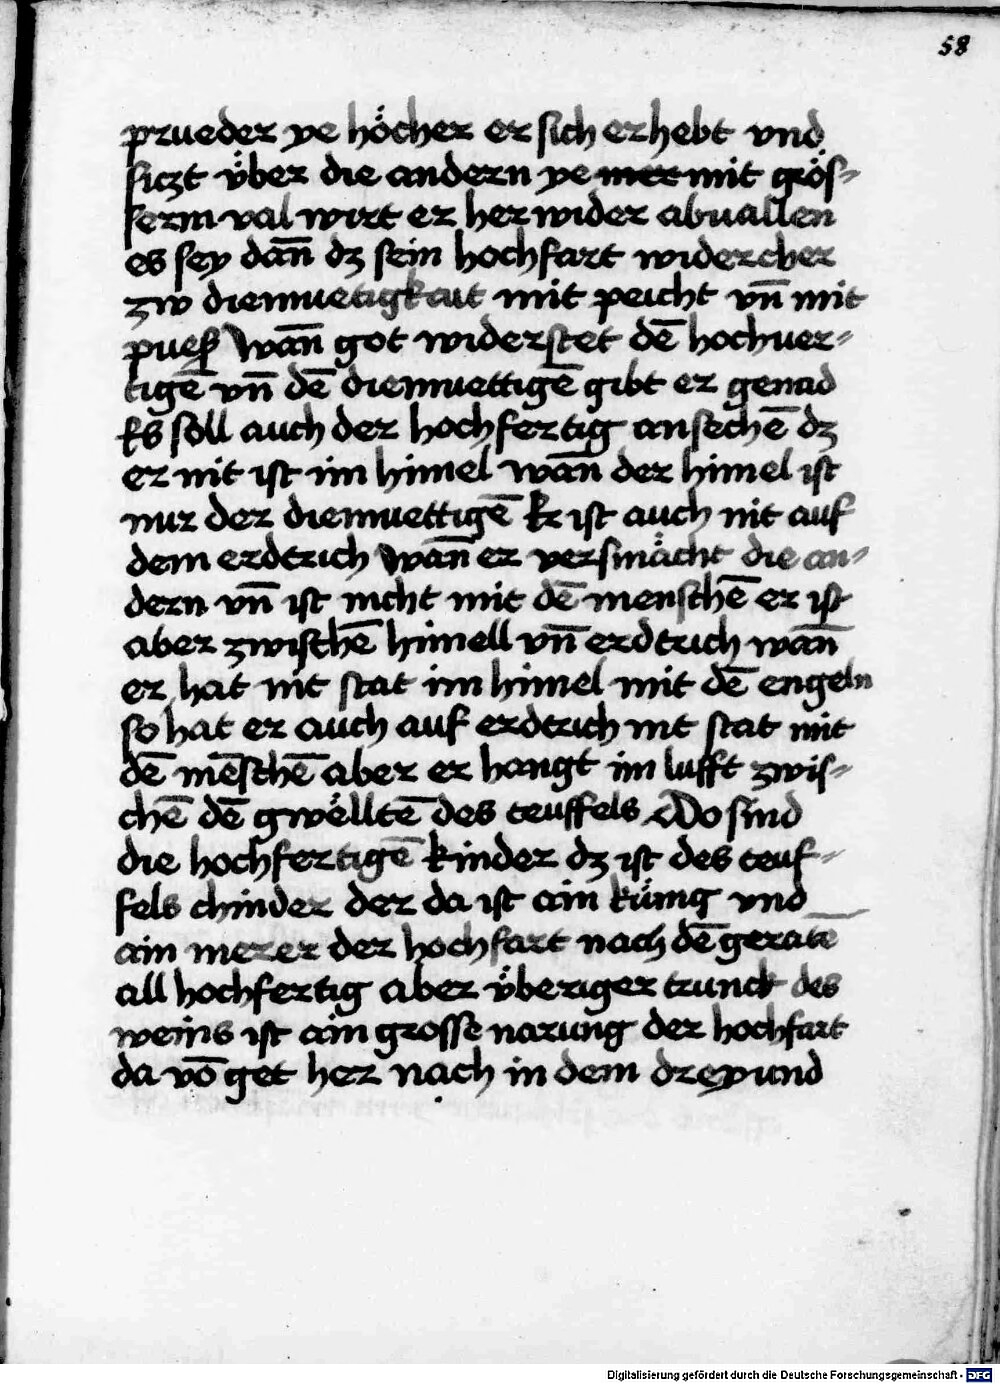 58
prueder ye höcher er sich erhebt vnd
siczt v̈ber die andern ye mer mit grös-
serm val wirt er her wider abuallen
es sey dañ dz sein hochfart widercher
zw diemuetigkait mit peicht vñ mit
pueß Wañ got widerstet dē hochuer-
tigē vñ dē diemuettigē gibt er genad
Es soll auch der hochfertig ansechē dz
er nit ist im himel wañ der himel ist
nur der diemuettigē Er ist auch nit auf
dem erdtrich Wañ er versmächt die an-
dern vñ ist nicht mit dē menschē er ist
aber zwischē himell vñ erdtrich wañ
er hat nit stat im himel mit dē engeln
so hat er auch auf erdtrich nit stat mit
dē mēschē aber er hangt im lufft zwis-
chē dē gwelltē des teuffels Do sind
die hochfertigē kinder dz ist des teuf-
fels chinder der da ist ain künig vnd
ain merer der hochfart nach dē geratē
all hochfertig aber v̈beriger trunck des
weins ist ain grosse narung der hochfart
da vō get her nach in dem dreyund
Digitalisierung gefördert durch die Deutsche Forschungsgemeinschaft - DFG